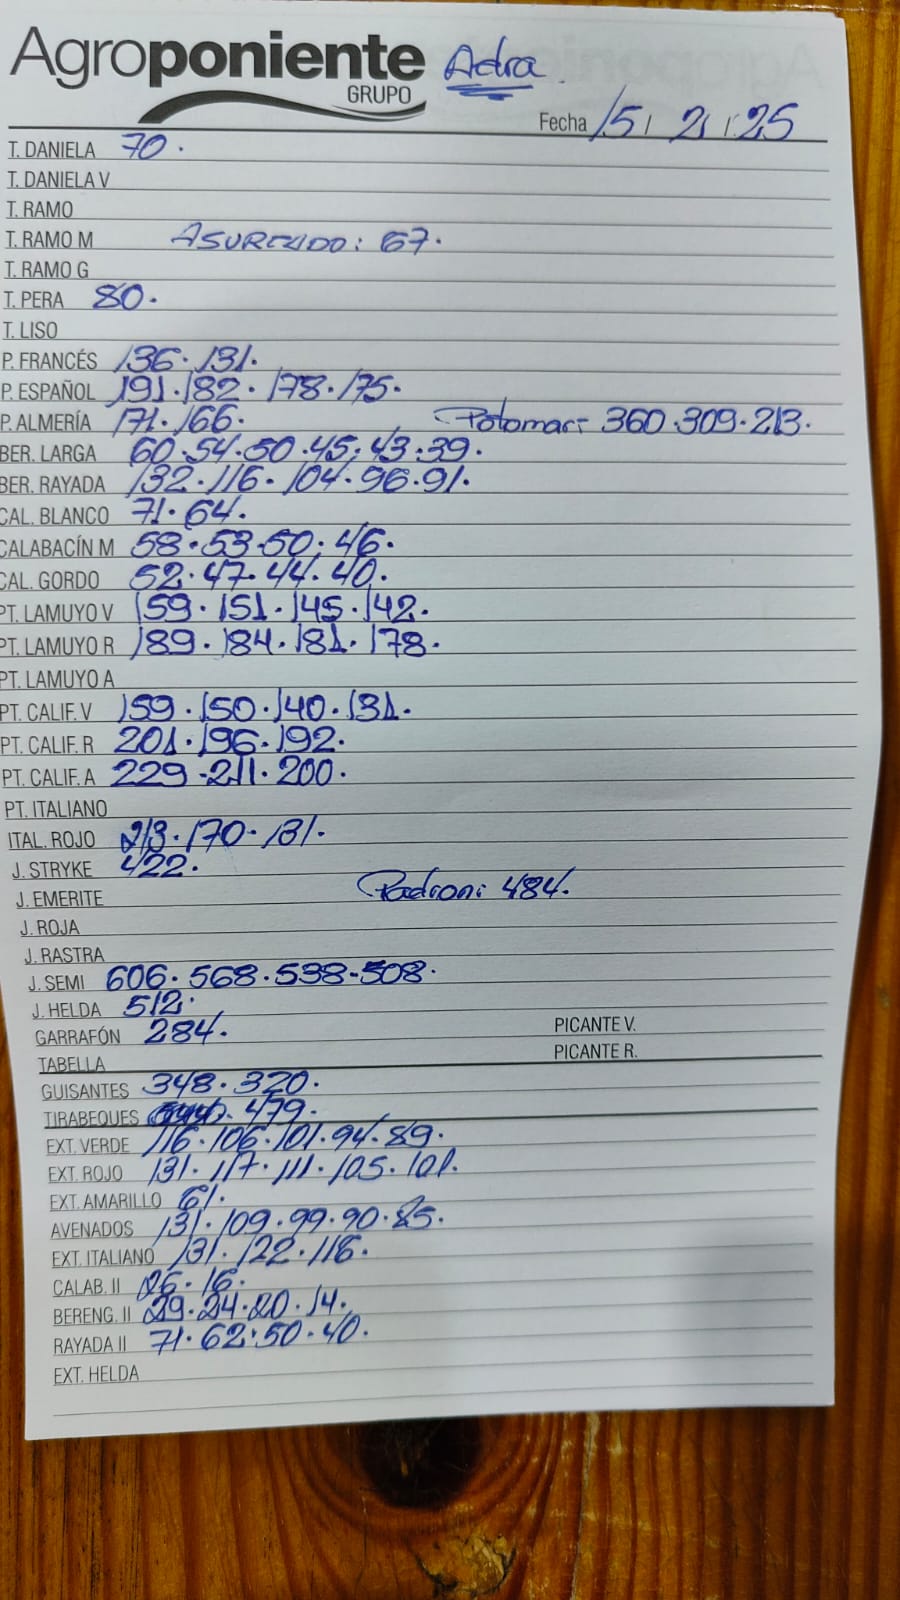 Agroponiente Adra
GRUPO
Fecha 15 / 2 / 25
T. DANIELA 70.
T. DANIELA V
T. RAMO
T. RAMO M ASURCADO: 67.
T. RAMO G
T. PERA 80.
T. LISO
P. FRANCÉS 136. 131.
P. ESPAÑOL 191. 182. 178. 175.
P. ALMERÍA 171. 166. Potomar: 360. 309. 213.
BER. LARGA 60. 54. 50. 45. 43. 39.
BER. RAYADA 132. 116. 104. 96. 91.
CAL. BLANCO 71. 64.
CALABACÍN M 58. 53. 50. 46.
CAL. GORDO 52. 47. 44. 40.
PT. LAMUYO V 159. 151. 145. 142.
PT. LAMUYO R 189. 184. 181. 178.
PT. LAMUYO A
PT. CALIF. V 159. 150. 140. 131.
PT. CALIF. R 201. 196. 192.
PT. CALIF. A 229. 211. 200.
PT. ITALIANO
ITAL. ROJO 213. 170. 131.
J. STRYKE 422.
J. EMERITE Padron: 484.
J. ROJA
J. RASTRA
J. SEMI 606. 568. 538. 508.
J. HELDA 512.
GARRAFÓN 284. PICANTE V.
TABELLA PICANTE R.
GUISANTES 348. 320.
TIRABEQUES 479.
EXT. VERDE 116. 106. 101. 94. 89.
EXT. ROJO 131. 117. 111. 105. 101.
EXT. AMARILLO 61.
AVENADOS 131. 109. 99. 90. 85.
EXT. ITALIANO 131. 122. 116.
CALAB. II 26. 16.
BERENG. II 29. 24. 20. 14.
RAYADA II 71. 62. 50. 40.
EXT. HELDA